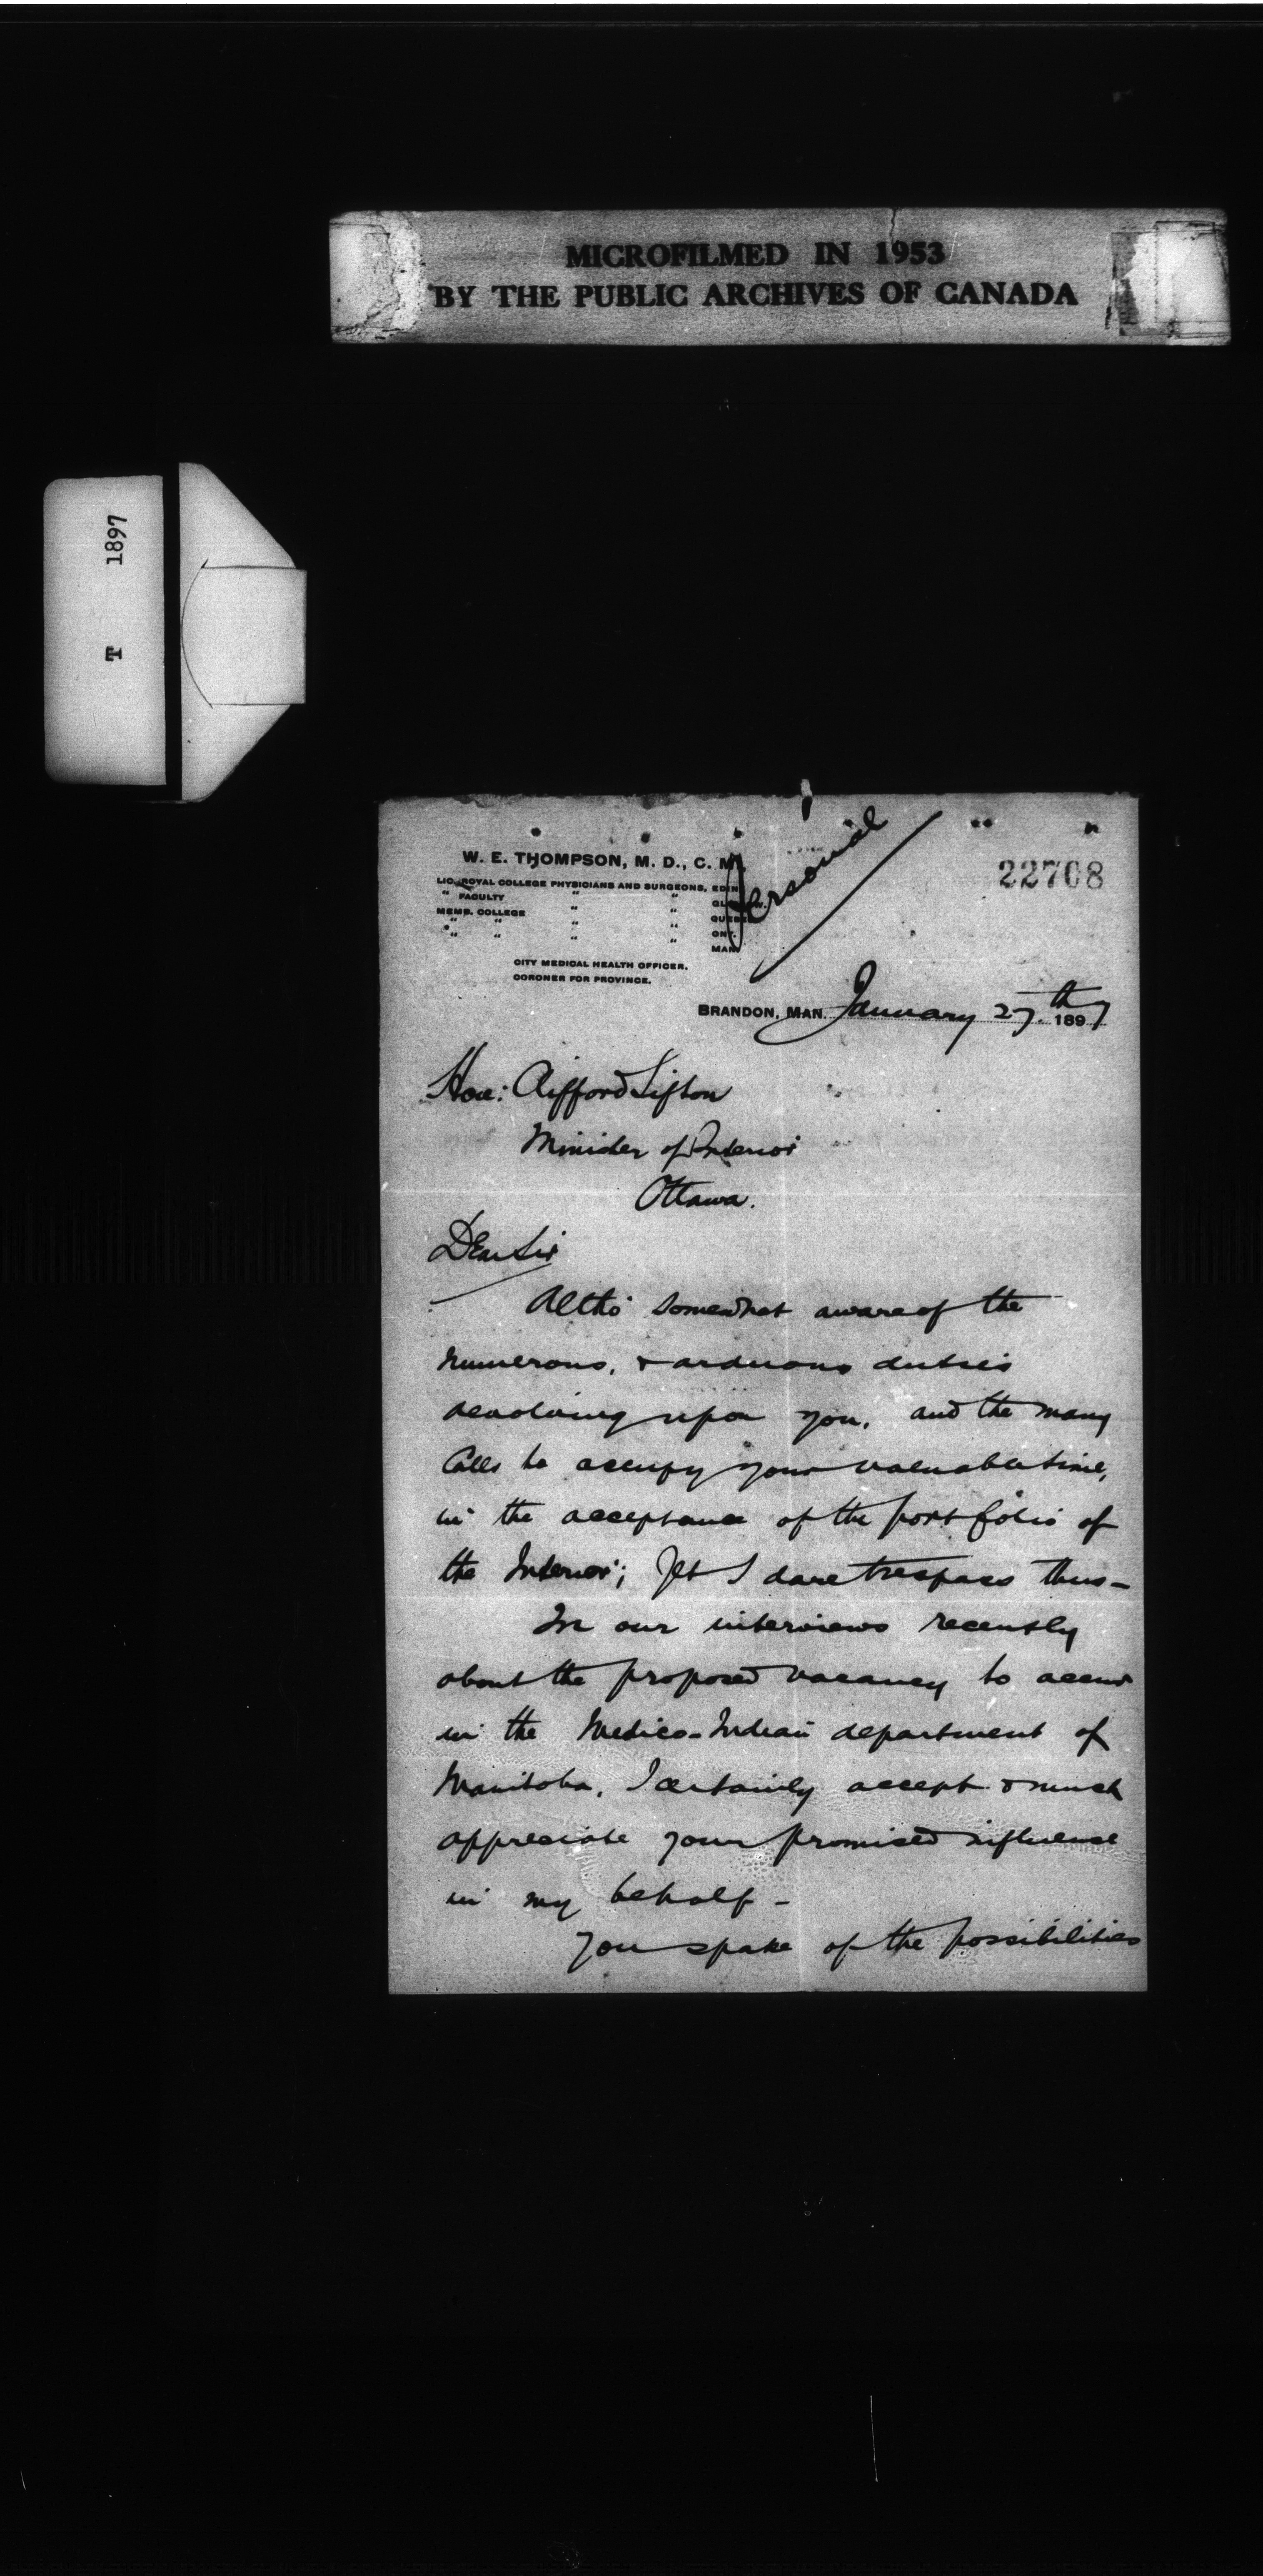 MICROFILMED IN 1953
BY THE PUBLIC ARCHIVES OF CANADA
T 1897
Personal
22708
W. E. THOMPSON, M. D., C. M.
LIC. ROYAL COLLEGE PHYSICIANS AND SURGEONS, EDIN.
" FACULTY " " GLASGOW.
MEMB. COLLEGE " " QUEBEC
" " " " ONT.
" " " " MAN.
CITY MEDICAL HEALTH OFFICER.
CORONER FOR PROVINCE.
BRANDON, MAN. January 27th 1897
Hon: Clifford Sifton
Minister of Interior
Ottawa.
Dear Sir
Altho' somewhat aware of the
numerous, & arduous duties
devolving upon you, and the many
Calls to occupy your valuable time,
in the acceptance of the portfolio of
the Interior; Yet I dare trespass thus -
In our interviews recently
about the proposed vacancy to occur
in the Medico-Indian department of
Manitoba, I certainly accept & much
appreciate your promised influence
in my behalf -
You spake of the possibilities